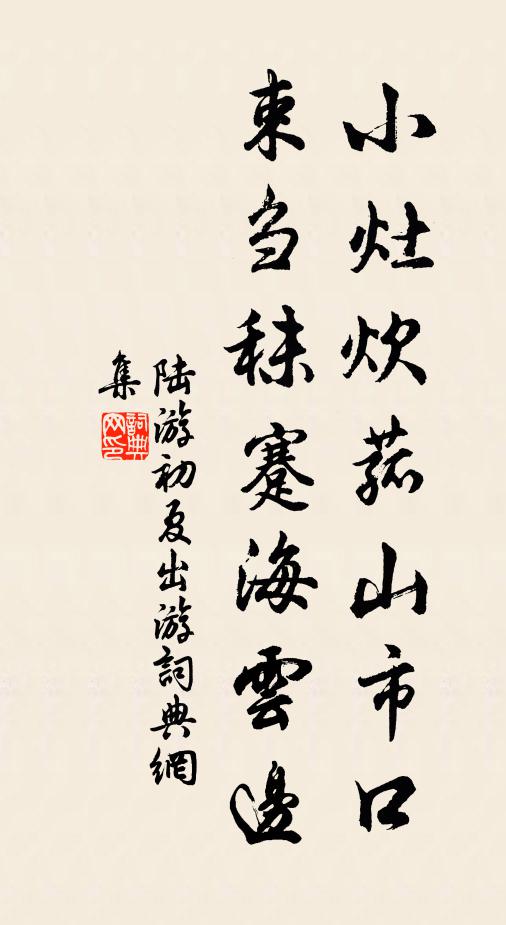 小灶炊菰山市口
束刍秣蹇海雲邊
陆游初夏出游詞典網
集
詞典
网印